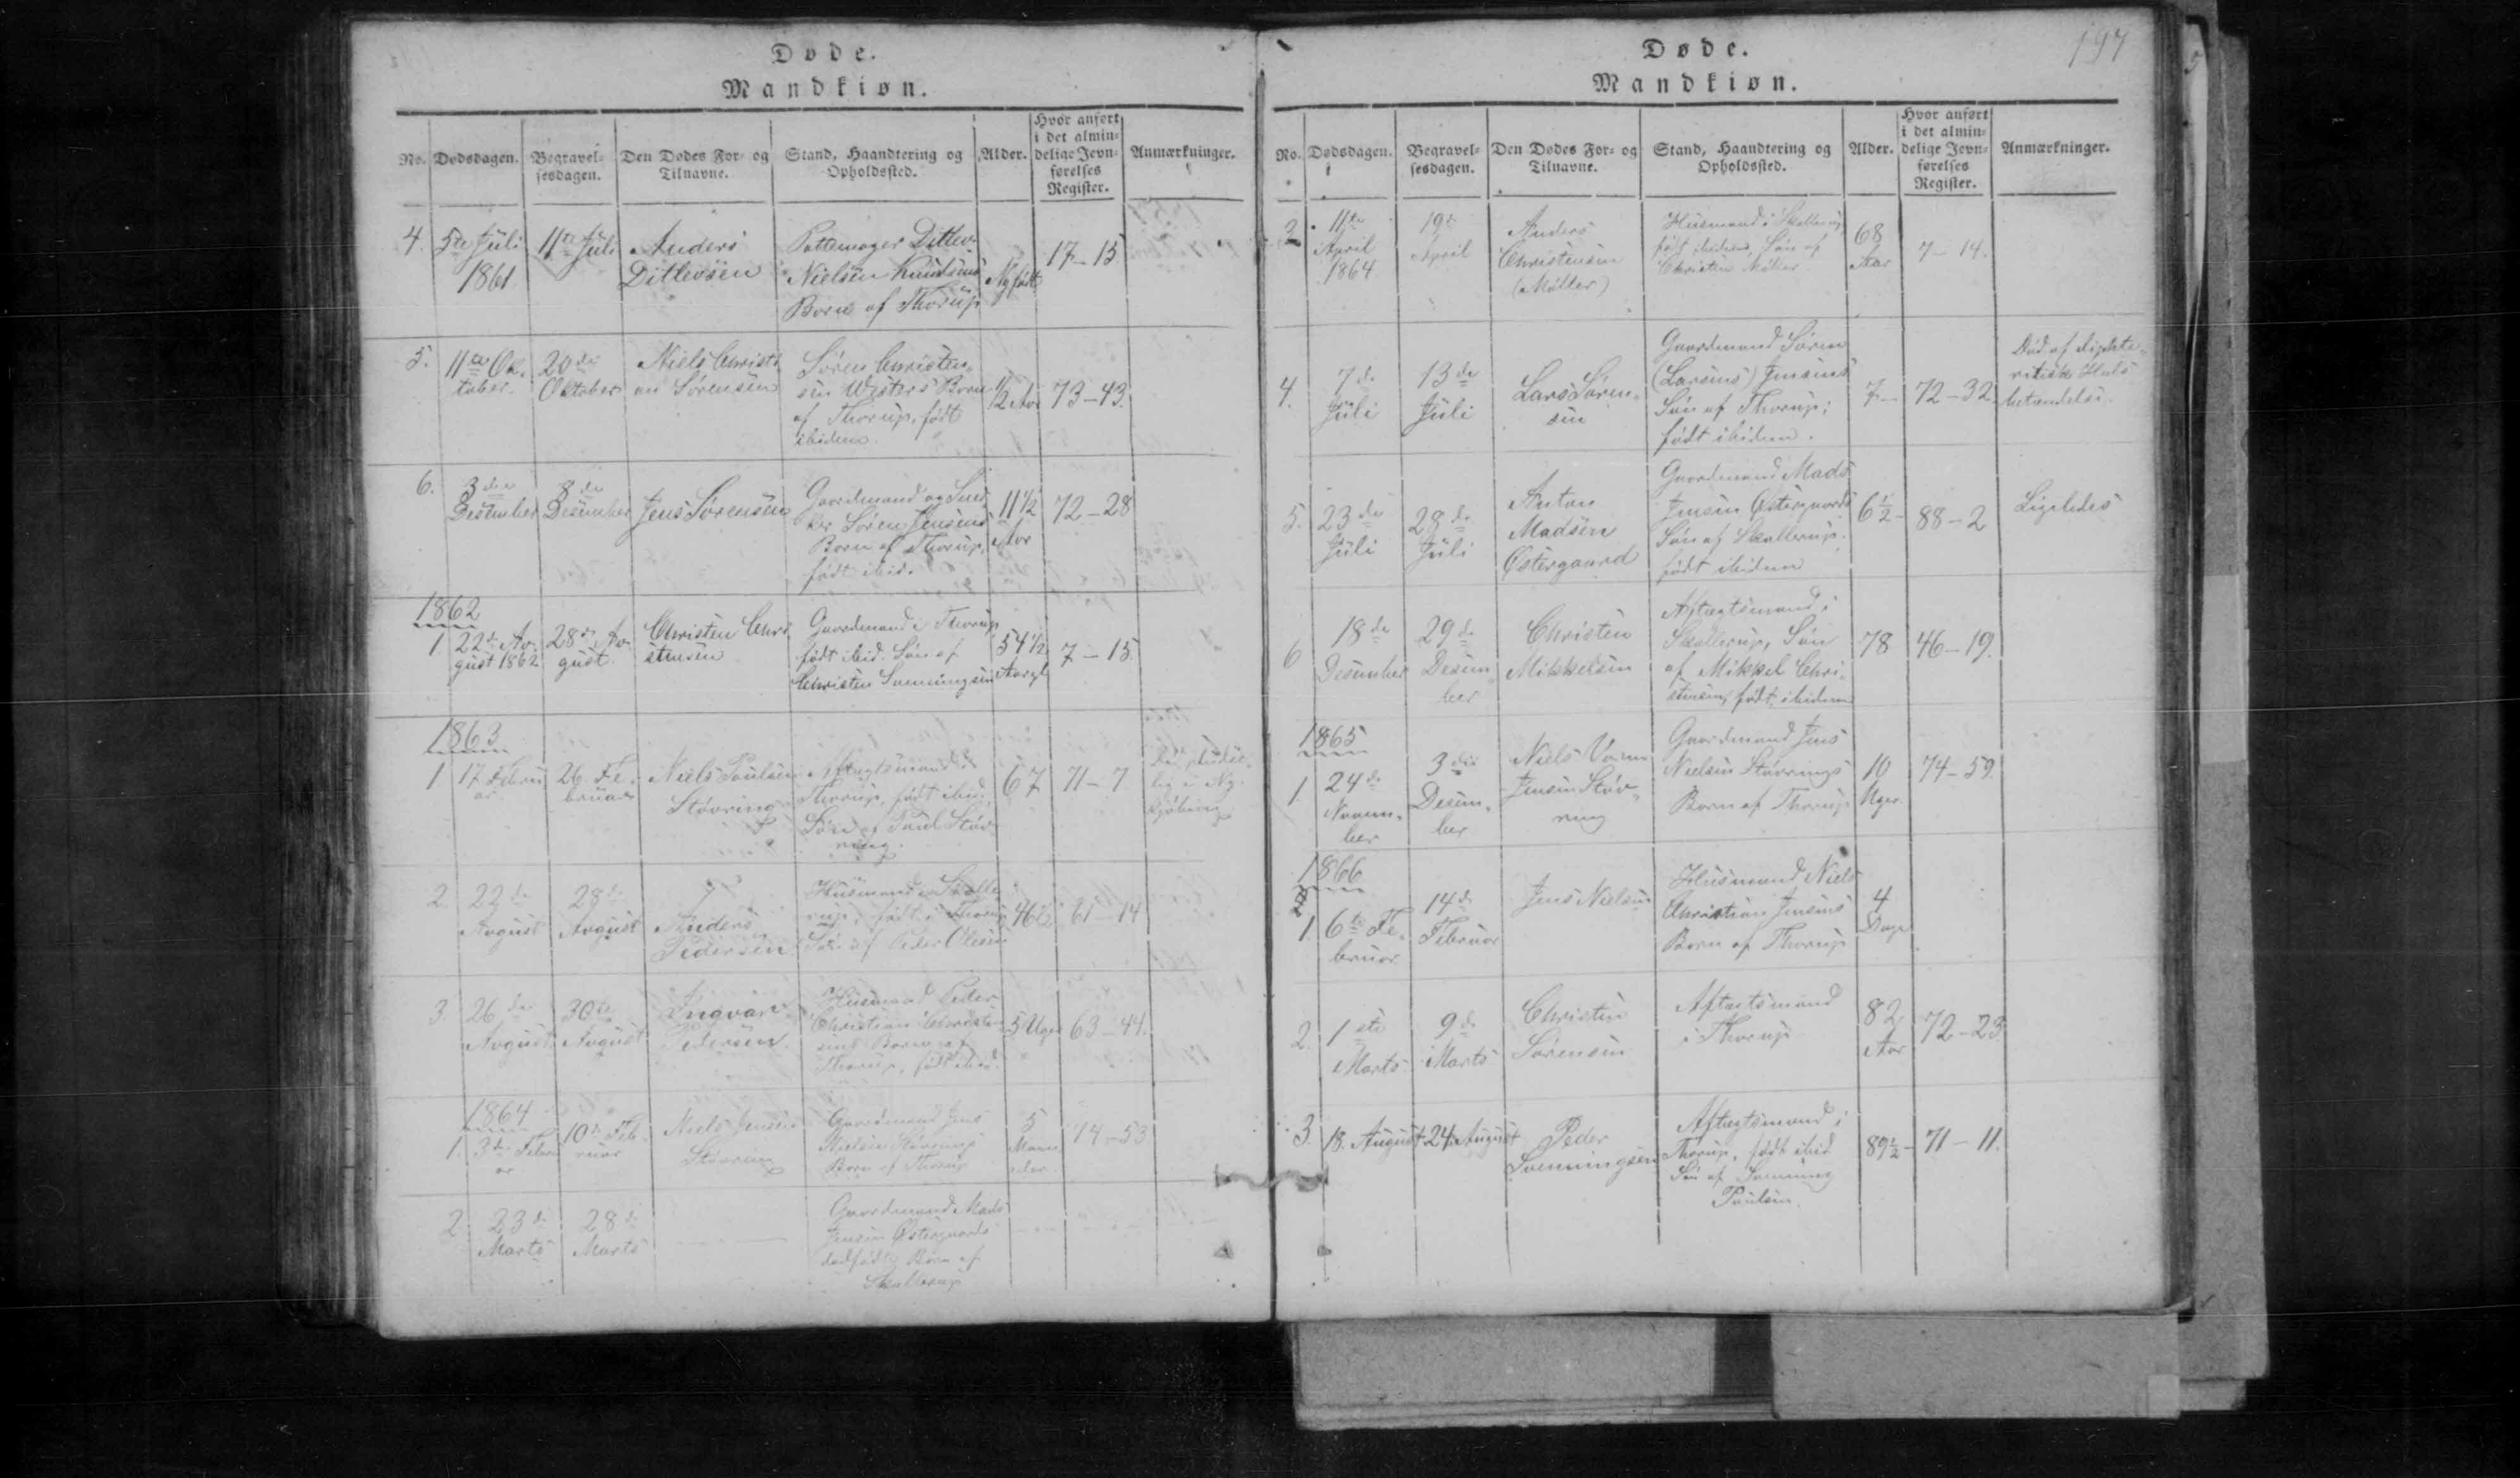 Døde.
Mandkiøn.
No.
Dødsdagen.
Begravel=
sesdagen.
Den Dødes For= og
Tilnavne.
Stand, Haandtering og
Opholdssted.
Alder.
Hvor anført
i det almin=
delige Jevn=
førelses
Register.
Anmærkninger.
4.
5te Juli
1861
11te Juli
Anders
Ditlevsen
Pottemager Ditlev
Nielsen Knudsens
Barn af Thorup
Nyfødt
17-15
5.
11te Ok=
tober.
20de
Oktober
Niels Christi
an Sørensen
Søren Christen=
sen Westers Barn
af Thorup, født
ibidem.
1/2 Aar
73-43.
6.
3die
December
8de
December
Jens Sørensen
Gaardmand og
Søren Jensens
Barn af Thorup,
født ibid.
11 1/2
Aar
72-28
1862
1.
22de Au=
gust 1862
28de Au=
gust.
Christen Chri
stensen
Gaardmand i Thorup
født ibid. Søn af
Christen Svenningsen
54 1/2
Aar
7-15.
1863
1.
17 Febru
ar
26. Fe=
bruar
Niels Poulsen
Støvring
Aftægtsmand i
Thorup, født ibid.
Søn af Poul Støv
ring.
67
71-7
2.
22de
August
28de
August
Anders
Pedersen
Husmand i Skalle
rup, født i Thorup
Søn af Peder Olesen
46 1/2
61-14
3.
26de
August
30te
August
Ingvar
Pedersen
Husmand Peder
Christian Christen
sens Barn af
Thorup, født ibid.
5 Uger
63-44.
1864
1.
3die Febru
ar
10de Feb=
ruar
Niels Jensen
Støvring
Gaardmand Jens
Nielsen Støvrings
Barn af Thorup
5
Maan
eder.
74-53
2.
23de
Marts
28de
Marts
Gaardmand Mads
Jensen Østergaards
dødfødte Barn af
Skallerup
197
Døde.
Mandkiøn.
No.
Dødsdagen.
Begravel=
sesdagen.
Den Dødes For= og
Tilnavne.
Stand, Haandtering og
Opholdssted.
Alder.
Hvor anført
i det almin=
delige Jevn=
førelses
Register.
Anmærkninger.
3.
11te
April
1864
19de
April
Anders
Christensen
(Møller)
Husmand i Skallerup
født ibidem, Søn af
Christen Møller
68
Aar
7-14.
4.
7de
Juli
13de
Juli
Lars Søren=
sen
Gaardmand Søren
(Larsens) Jensens
Søn af Thorup;
født ibidem.
7-
72-32.
Død af diphte=
ritisk Hals
betændelse.
5.
23de
Juli
28de
Juli
Anton
Madsen
Østergaard
Gaardmand Mads
Jensen Østergaards
Søn af Skallerup.
født ibidem
6 1/2-
88-2
Ligeledes
6
18de
December
29de
Decem=
ber
Christen
Mikkelsen
Aftægtsmand i
Skallerup, Søn
af Mikkel Chri=
stensen, født ibidem
78
46-19.
1865
1.
24de
Novem=
ber
3die
Decem=
ber
Niels
Jensen Støv=
ring
Gaardmand Jens
Nielsen Støvrings
Barn af Thorup
10
Uger.
74-59.
1866
1.
6te Fe=
bruar.
14de
Februar
Jens Nielsen
Husmand Niels
Christian Jensens
Barn af Thorup
4
Dage
2.
1ste
Marts
9de
Marts
Christen
Sørensen
Aftægtsmand
i Thorup
82
Aar
72-23
3.
18. August
24 August
Peder
Svenningsen
Aftægtsmand i
Thorup, født ibid
Søn af Svenning
Poulsen.
89 1/2-
71-11.